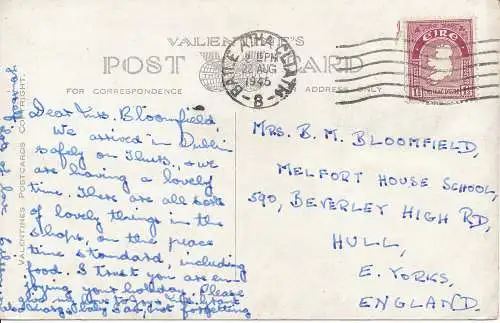 VALENTINE'S
POST CARD
FOR CORRESPONDENCE
ADDRESS ONLY
BAILE ÁTHA CLIATH
PM
22 AUG
1945
8
EIRE
VALENTINES POSTCARDS COPYRIGHT.
Dear Mrs. Bloomfield,
We arrived in Dublin
safely on Thurs., & we
are having a lovely
time. There are all sorts
of lovely things in the
shops, on the peace
time standard, including
food. I trust you are en-
joying your holiday. Please
give my love to
baby
not forgetting
MRS. B. M. BLOOMFIELD,
MELFORT HOUSE SCHOOL,
590, BEVERLEY HIGH RD,
HULL,
E. YORKS,
ENGLAND.